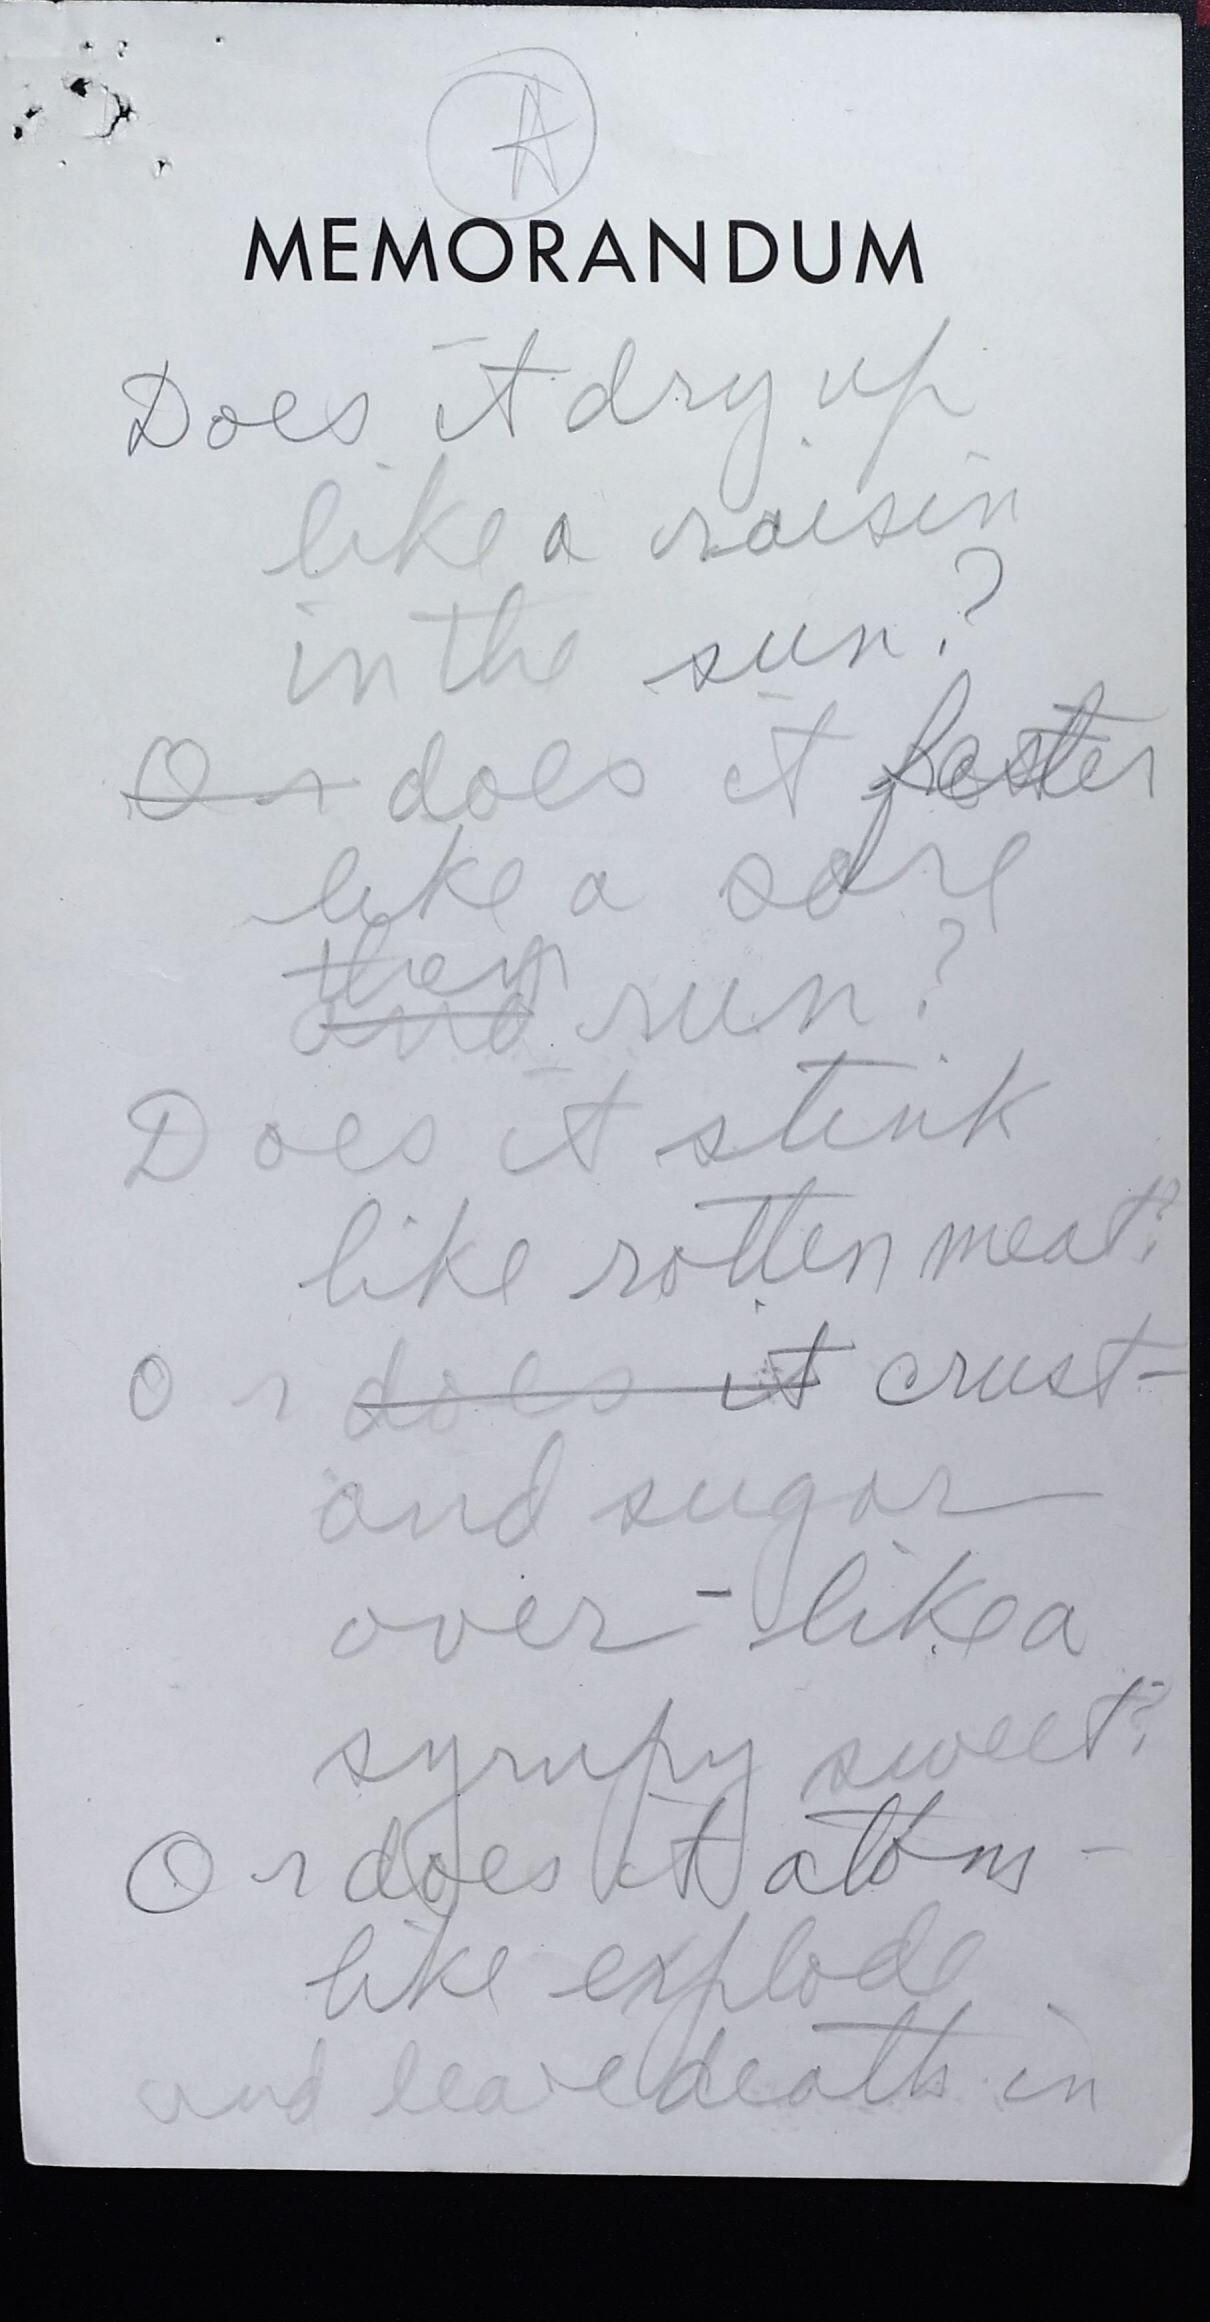 A
MEMORANDUM
Does it dry up
like a raisin
in the sun?
Or does it fester
like a sore
then
and run?
Does it stink
like rotten meat?
Or does it crust-
and sugar
over - like a
syrupy sweet?
Or does it atom-
like explode
and leave death in